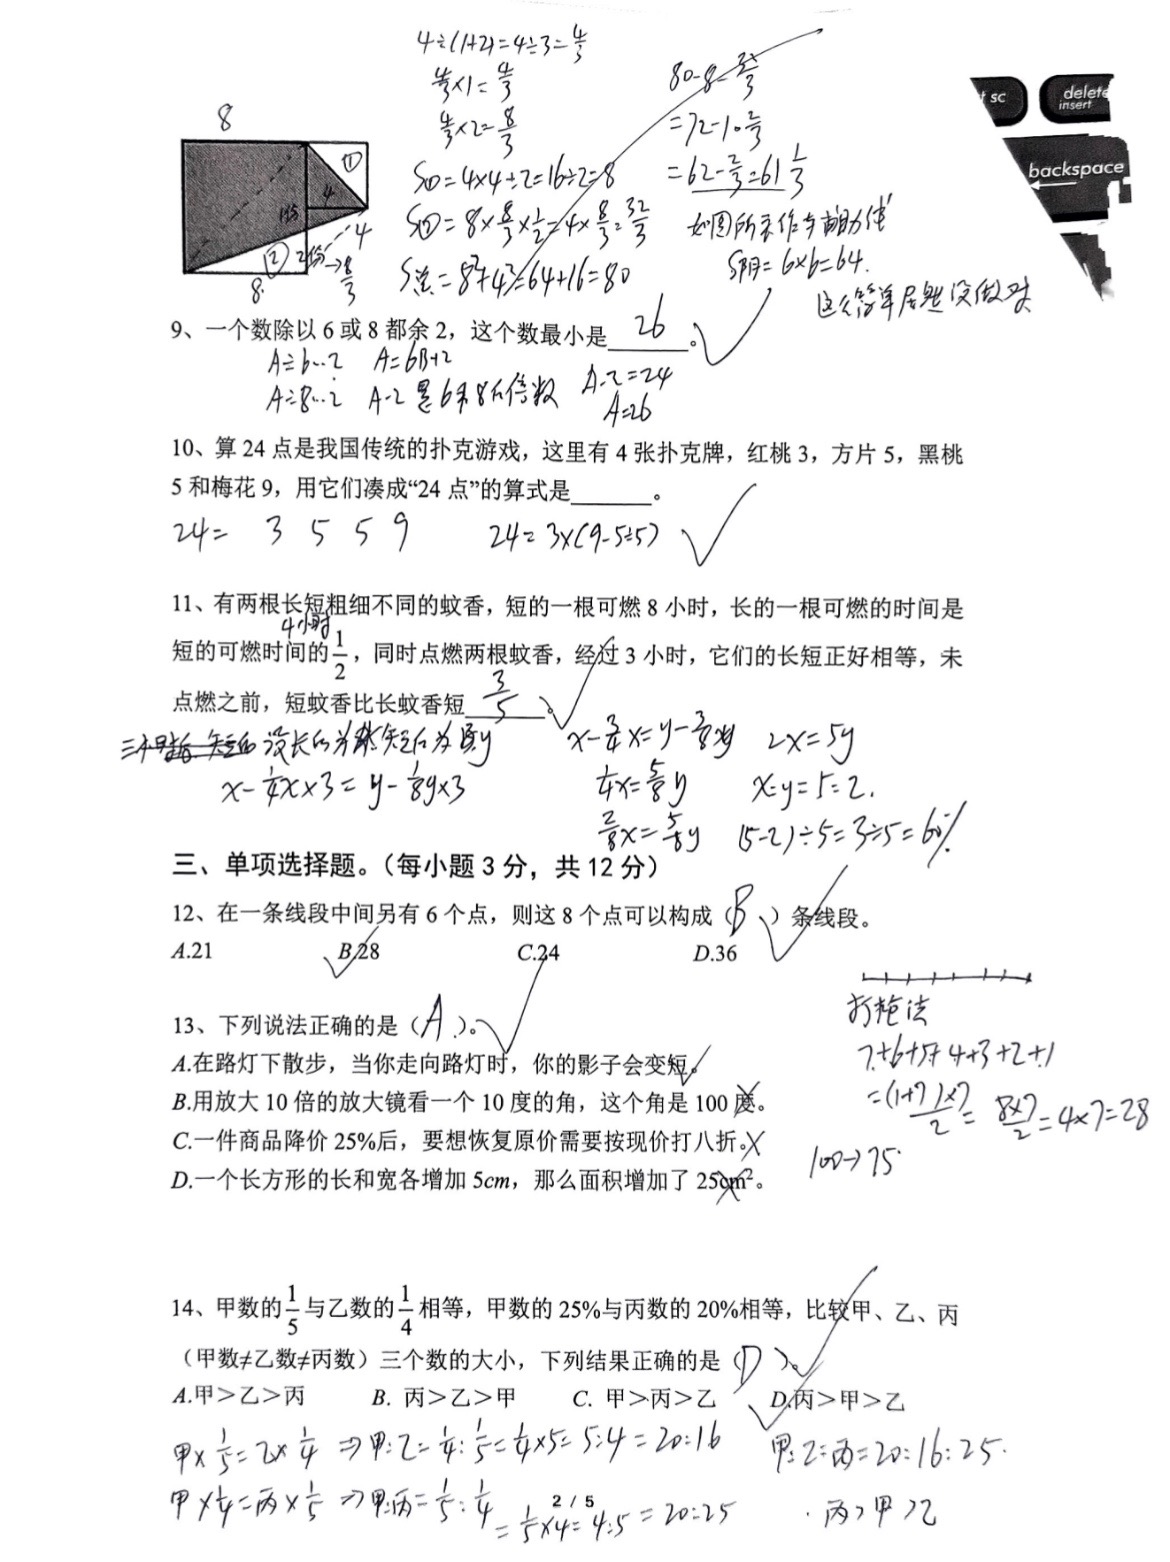 4÷(1+2)=4÷3=4/3
4/3×1=4/3
4/3×2=8/3
S①=4×4÷2=16÷2=8
S②=8×8/3×1/2=4×8/3=32/3
S总=8²+4²=64+16=80
80-8-32/3
=72-10 2/3
=62-2/3=61 1/3
如图所示作与辅助线
S阴=6×6=64.
这么简单居然没做对
8
①
4
1份
② 2份→8/3
4
8
t sc
delete
insert
backspace
9、一个数除以 6 或 8 都余 2，这个数最小是 26 。
A÷6…2 A=6B+2
A÷8…2 A-2是6和8的倍数
A-2=24
A=26
10、算 24 点是我国传统的扑克游戏，这里有 4 张扑克牌，红桃 3，方片 5，黑桃
5 和梅花 9，用它们凑成“24 点”的算式是______。
24= 3 5 5 9 24=3×(9-5÷5)
11、有两根长短粗细不同的蚊香，短的一根可燃 8 小时，长的一根可燃的时间是
4小时
短的可燃时间的1/2，同时点燃两根蚊香，经过 3 小时，它们的长短正好相等，未
点燃之前，短蚊香比长蚊香短 3/5 。
设长的为x 短的为y
x-1/4x×3=y-1/8y×3
x-3/4x=y-3/8y 2x=5y
1/4x=5/8y x:y=5:2.
2/8x=5/8y (5-2)÷5=3÷5=60%
三、单项选择题。（每小题 3 分，共 12 分）
12、在一条线段中间另有 6 个点，则这 8 个点可以构成（B）条线段。
A.21 B.28 C.24 D.36
打枪法
7+6+5+4+3+2+1
=(1+7)×7/2=8×7/2=4×7=28
13、下列说法正确的是（A）。
A.在路灯下散步，当你走向路灯时，你的影子会变短。
B.用放大 10 倍的放大镜看一个 10 度的角，这个角是 100 度。
C.一件商品降价 25%后，要想恢复原价需要按现价打八折。×
100→75
D.一个长方形的长和宽各增加 5cm，那么面积增加了 25cm²。
14、甲数的1/5与乙数的1/4相等，甲数的 25%与丙数的 20%相等，比较甲、乙、丙
（甲数≠乙数≠丙数）三个数的大小，下列结果正确的是（D）。
A.甲＞乙＞丙 B. 丙＞乙＞甲 C. 甲＞丙＞乙 D.丙＞甲＞乙
甲×1/5=乙×1/4 ⇒甲:乙=1/4:1/5=1/4×5=5:4=20:16
甲:乙:丙=20:16:25.
甲×1/4=丙×1/5 ⇒甲:丙=1/5:1/4=1/5×4=4:5=20:25
∴丙>甲>乙
2 / 5